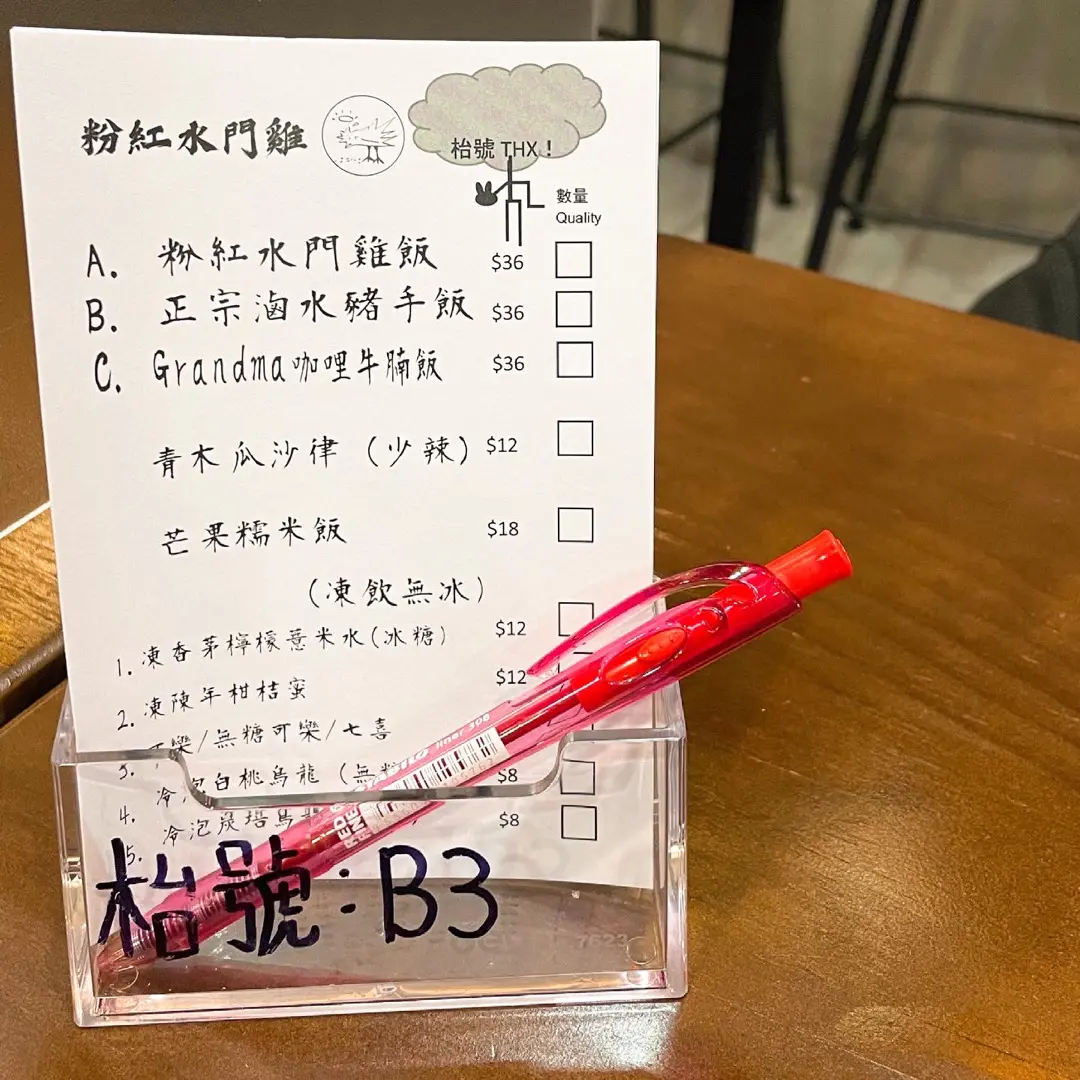 粉紅水門雞
枱號 THX！
數量
Quality
A. 粉紅水門雞飯 $36
B. 正宗滷水豬手飯 $36
C. Grandma咖哩牛腩飯 $36
青木瓜沙律（少辣） $12
芒果糯米飯 $18
（凍飲無冰）
1. 凍香茅檸檬薏米水（冰糖） $12
2. 凍陳年柑桔蜜 $12
3. 可樂/無糖可樂/七喜
4. 冷泡白桃烏龍（無 $8
5. 冷泡炭培烏 $8
liner 308
枱號:B3
7623